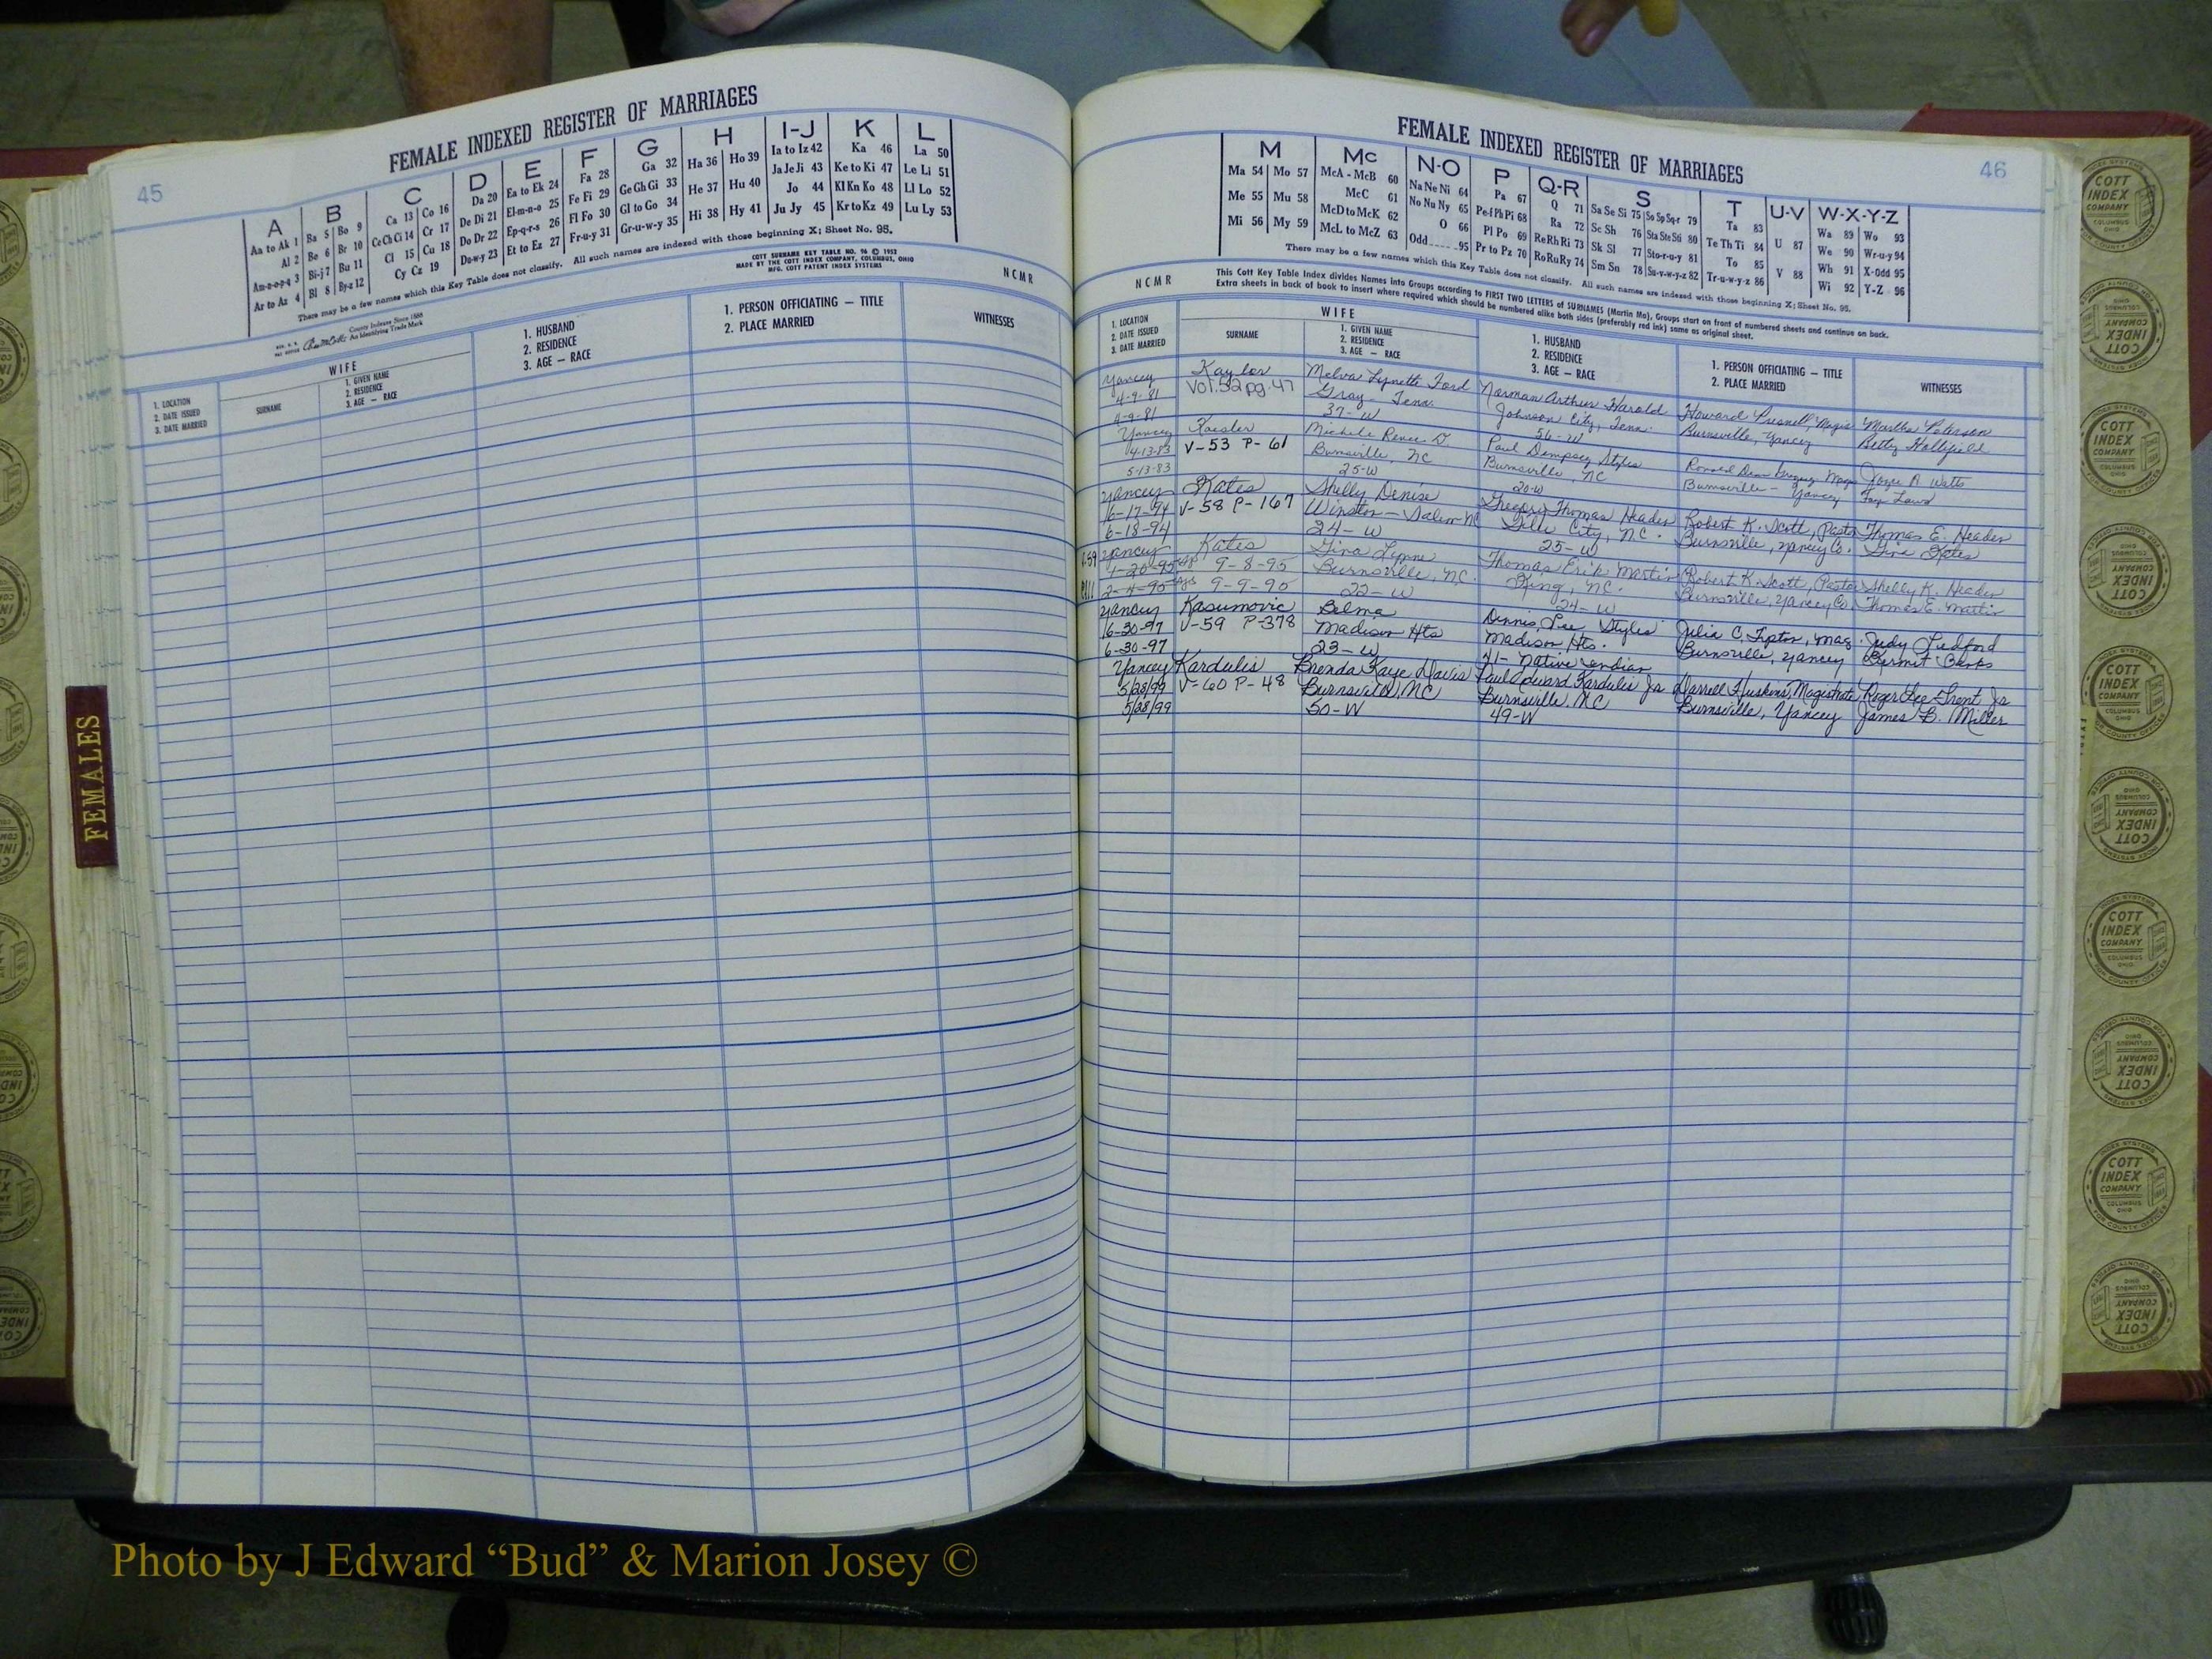 45
FEMALE INDEXED REGISTER OF MARRIAGES
A
Aa to Ak 1
Al 2
Am-n-o-p-q 3
Ar to Az 4
B
Ba 5 Bo 9
Be 6 Br 10
Bi-j 7 Bu 11
Bl 8 By-z 12
C
Ca 13 Co 16
Ce Ch Ci 14 Cr 17
Cl 15 Cu 18
Cy Cz 19
D
Da 20
De Di 21
Do Dr 22
Du-w-y 23
E
Ea to Ek 24
El-m-n-o 25
Ep-q-r-s 26
Et to Ez 27
F
Fa 28
Fe Fi 29
Fl Fo 30
Fr-u-y 31
G
Ga 32
Ge Gh Gi 33
Gl to Go 34
Gr-u-w-y 35
H
Ha 36 Ho 39
He 37 Hu 40
Hi 38 Hy 41
I-J
Ia to Iz 42
Ja Je Ji 43
Jo 44
Ju Jy 45
K
Ka 46
Ke to Ki 47
Kl Kn Ko 48
Kr to Kz 49
L
La 50
Le Li 51
Ll Lo 52
Lu Ly 53
There may be a few names which this Key Table does not classify. All such names are indexed with those beginning X; Sheet No. 95.
County Indexes Since 1888
An Identifying Trade Mark
COTT SURNAME KEY TABLE NO. 96 © 1952
MADE BY THE COTT INDEX COMPANY, COLUMBUS, OHIO
MFG. COTT PATENT INDEX SYSTEMS
NCMR
1. LOCATION
2. DATE ISSUED
3. DATE MARRIED
WIFE
SURNAME
1. GIVEN NAME
2. RESIDENCE
3. AGE — RACE
1. HUSBAND
2. RESIDENCE
3. AGE — RACE
1. PERSON OFFICIATING — TITLE
2. PLACE MARRIED
WITNESSES
FEMALES
46
FEMALE INDEXED REGISTER OF MARRIAGES
M
Ma 54 Mo 57
Me 55 Mu 58
Mi 56 My 59
Mc
McA - McB 60
McC 61
McD to McK 62
McL to McZ 63
N-O
Na Ne Ni 64
No Nu Ny 65
O 66
Odd 95
P
Pa 67
Pe-f Ph Pi 68
Pl Po 69
Pr to Pz 70
Q-R
Q 71
Ra 72
Re Rh Ri 73
Ro Ru Ry 74
S
Sa Se Si 75 So Sp Sq-r 79
Sc Sh 76 Sta Ste Sti 80
Sk Sl 77 Sto-r-u-y 81
Sm Sn 78 Su-v-w-y-z 82
T
Ta 83
Te Th Ti 84
To 85
Tr-u-w-y-z 86
U-V
U 87
V 88
W-X-Y-Z
Wa 89 Wo 93
We 90 Wr-u-y 94
Wh 91 X-Odd 95
Wi 92 Y-Z 96
There may be a few names which this Key Table does not classify. All such names are indexed with those beginning X; Sheet No. 95.
This Cott Key Table Index divides Names into Groups according to FIRST TWO LETTERS of SURNAMES (Martin Ma), Groups start on front of numbered sheets and continue on back.
Extra sheets in back of book to insert where required which should be numbered alike both sides (preferably red ink) same as original sheet.
NCMR
1. LOCATION
2. DATE ISSUED
3. DATE MARRIED
WIFE
SURNAME
1. GIVEN NAME
2. RESIDENCE
3. AGE — RACE
1. HUSBAND
2. RESIDENCE
3. AGE — RACE
1. PERSON OFFICIATING — TITLE
2. PLACE MARRIED
WITNESSES
Yancey Kaylor Melva Lynette Ford Norman Arthur Harold Howard Presnell, Magis Martha Peterson
4-9-81 Vol. 52 pg. 47 Gray - Tenn. Johnson City, Tenn. Burnsville, Yancey Betty Hollifield
4-9-81 37-W 56-W
Yancey Michele Renee D Paul Dempsey Styles Joyce A Watts
4-13-83 V-53 P-61 Burnsville, NC Burnsville, NC Burnsville - Yancey Faye Laws
5-13-83 25-W 20-W
Yancey Kates Shelly Denise Gregory Thomas Header Robert K. Scott, Pastor Thomas E. Header
6-17-94 V-58 P-167 Winston-Salem NC City, N.C. Burnsville, Yancey Co. Gina Kates
6-18-94 24-W 25-W
Yancey Kates Gina Lynne Thomas Erik Martin Robert K. Scott, Pastor Shelly K. Header
9-8-95 Burnsville, NC. King, NC. Burnsville, Yancey Co. Thomas E. Martin
9-9-95 22-W 24-W
Yancey Kasumovic Belma Dennis Lee Styles Julia C. Tipton, Mag. Judy Ledford
6-30-97 V-59 P-378 Madison Hts Madison Hts. Burnsville, Yancey Kermit Banks
6-30-97 23-W 41- Native Indian
Yancey Kardulis Brenda Kaye Davis Paul Edward Kardulis Jr Darrell Huskins, Magistrate Roger Lee Trent Jr
5/28/99 V-60 P-48 Burnsville, NC Burnsville, NC Burnsville, Yancey James B. Miller
5/28/99 50-W 49-W
COTT INDEX COMPANY
COLUMBUS OHIO
Photo by J Edward “Bud” & Marion Josey ©